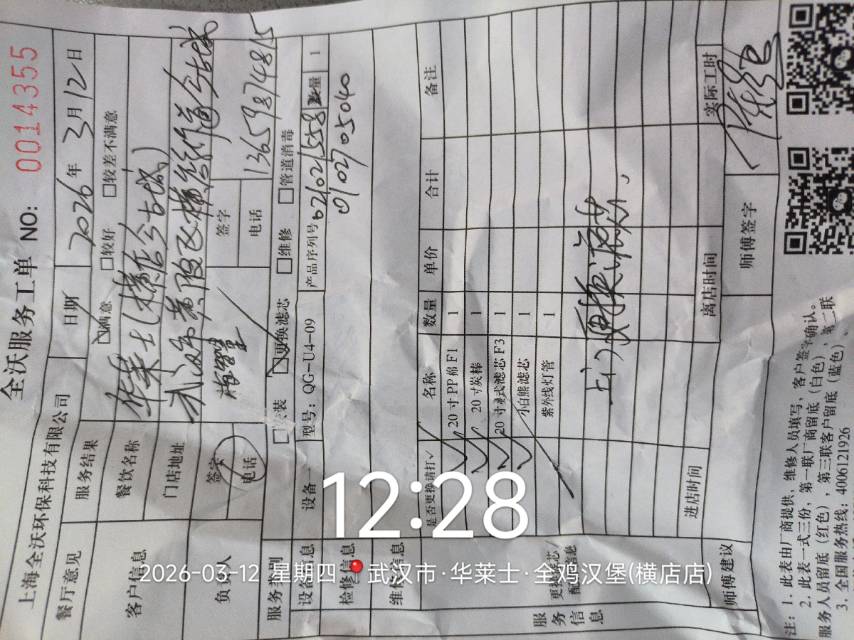 全沃服务工单 NO: 0014355
上海全沃环保科技有限公司
日期 2026年3月12日
餐厅意见 服务结果 满意 较好 较差不满意
客户信息 餐饮名称 华莱士(横店今古城)
门店地址 武汉市黄陂区横店街道今古城
负责人 签字 签字
电话 电话 13659874815
服务类别 安装 更换滤芯 维修 管道消毒
设备信息 设备 型号: QG-U4-09 产品序列号 数量 1
检修信息 010705040
维修信息
是否更换请打✓ 名称 数量 单价 合计 备注
20寸PP棉F1 1
20寸炭棒 1
20寸 滤芯F3 1
小白熊滤芯 1
紫外线灯管 1
服务信息
上门更换滤芯.
进店时间 离店时间 实际工时
师傅建议 师傅签字
注: 1、此表由厂商提供、维修人员填写,客户签字确认。
2、此表一式三份,第一联厂商留底(白色),第二联
服务人员留底(红色),第三联客户留底(蓝色)
3、全国服务热线: 4006121926
12:28
2026-03-12 星期四 武汉市·华莱士·全鸡汉堡(横店店)